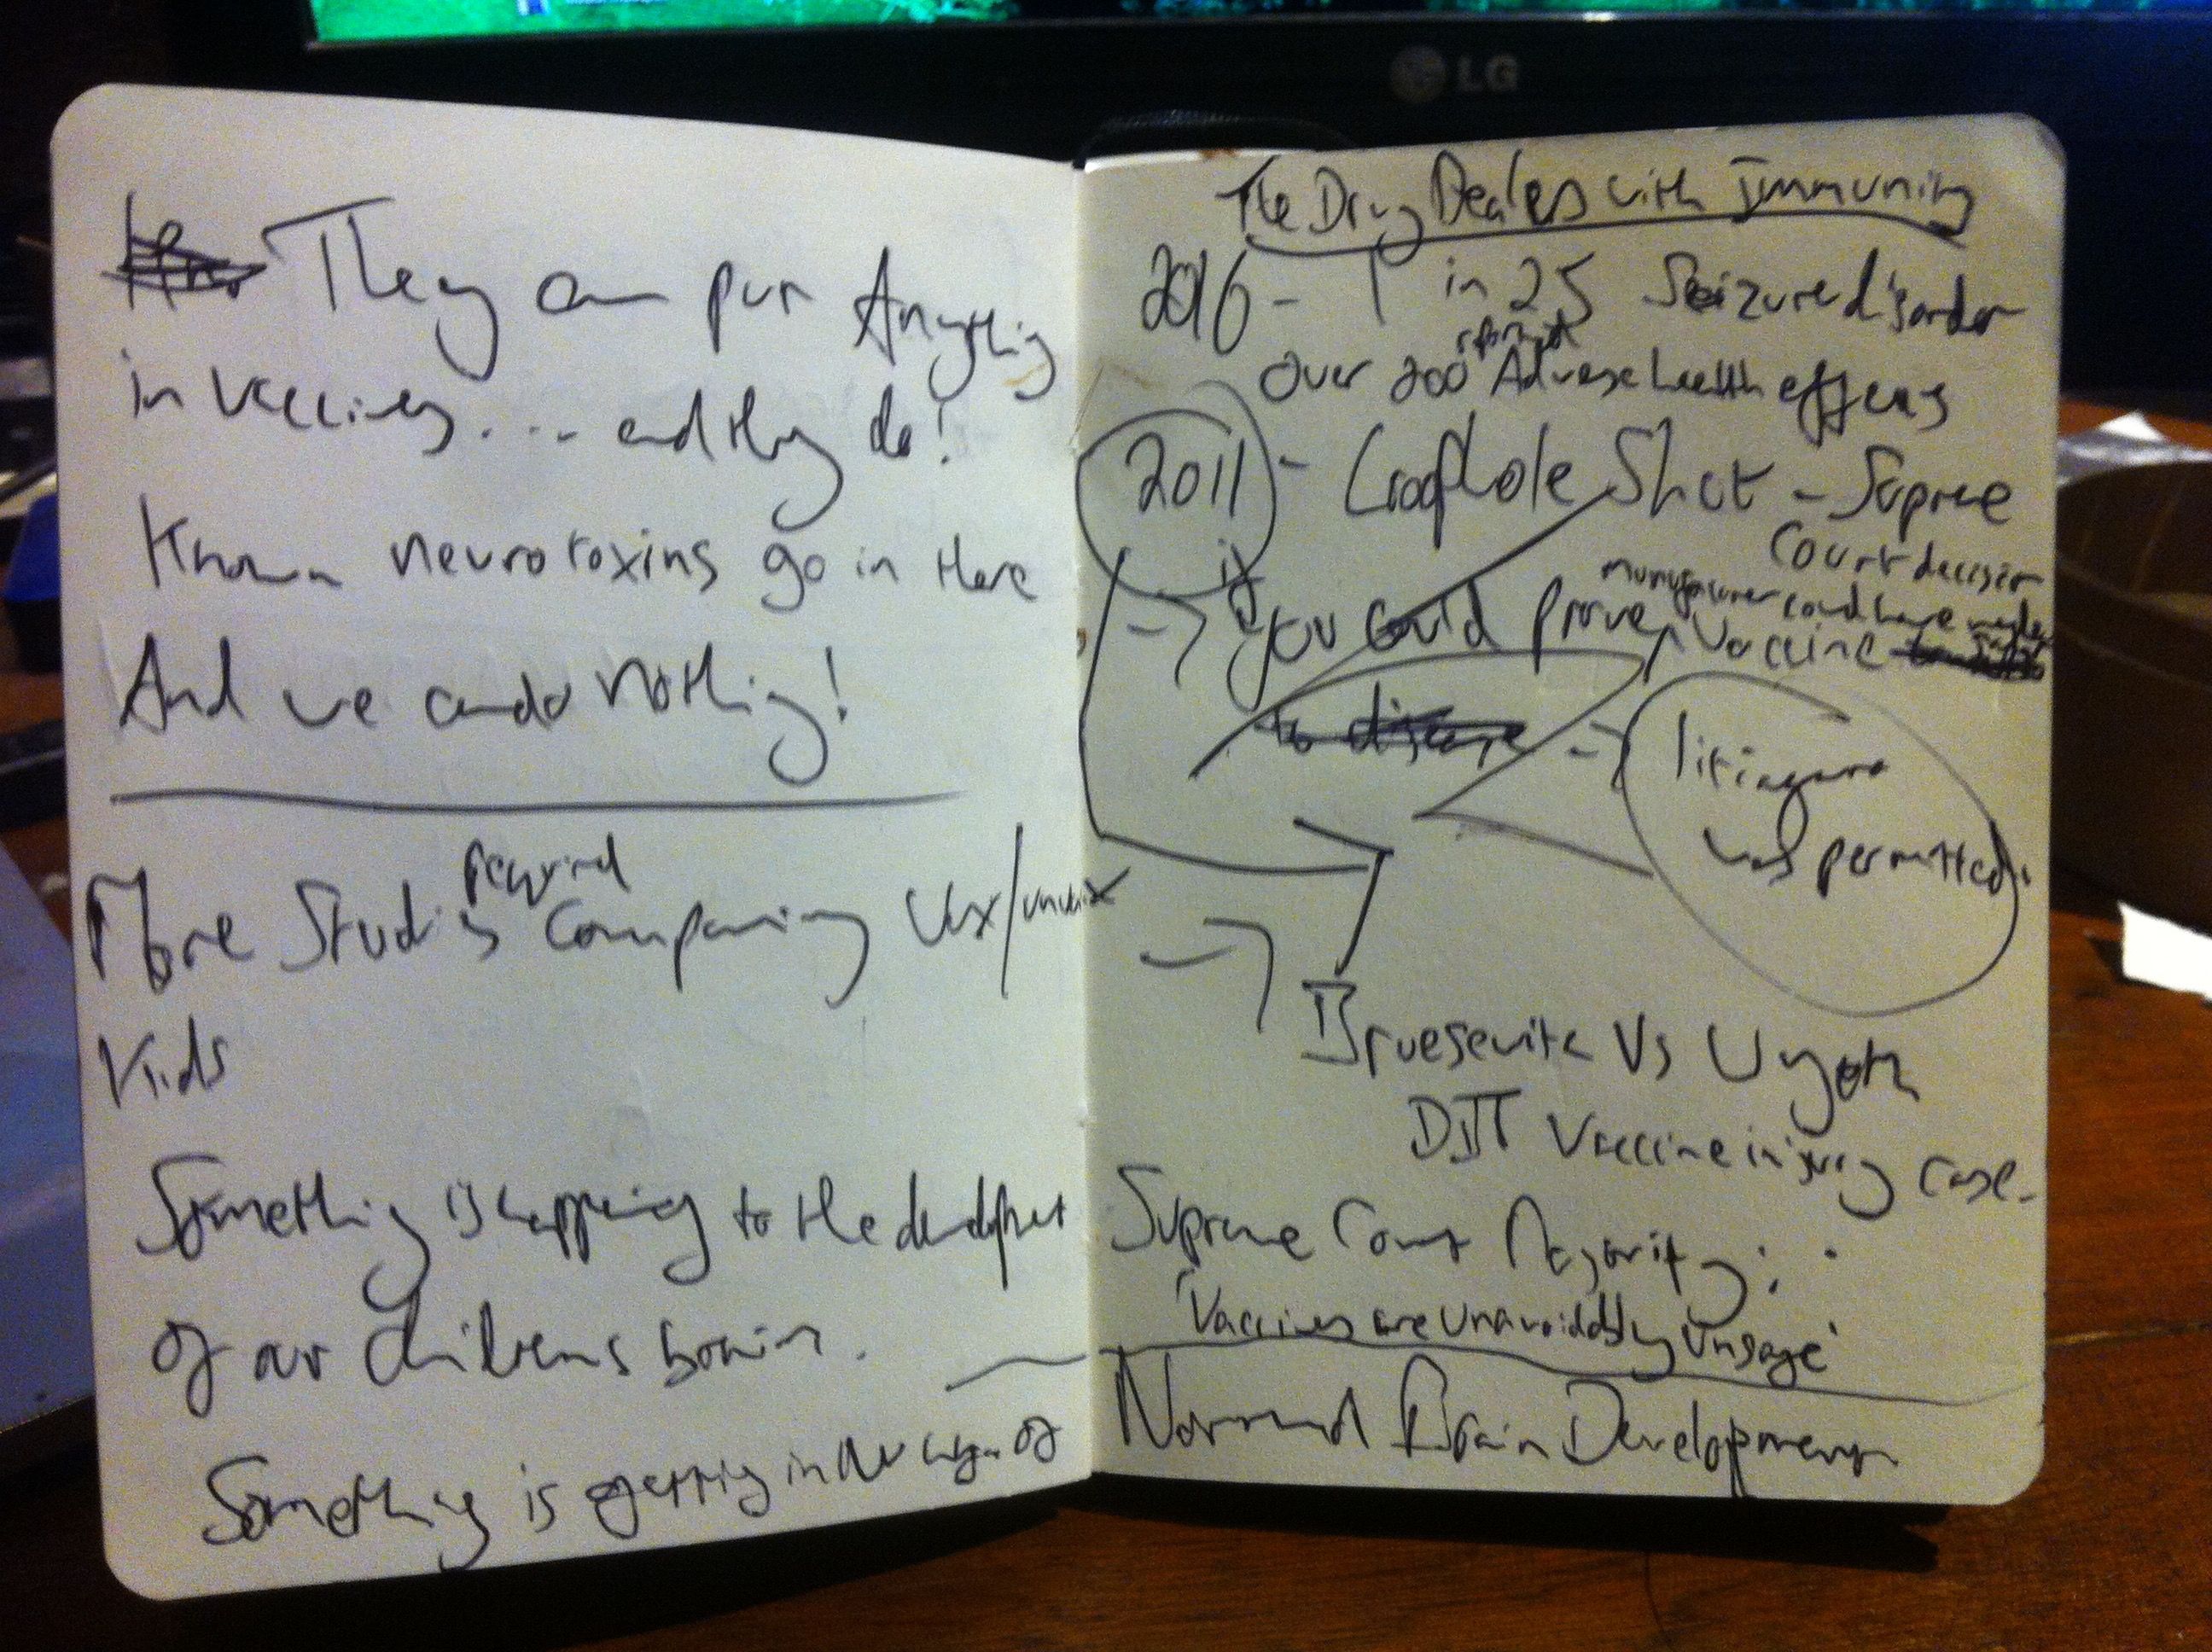 LG
They can put Anything
in Vaccines.... and they do!
Known neurotoxins go in there
And we can do Nothing!
required
More Studies Comparing Vax/unvax
Kids
Something is happening to the development
of our childrens brains.
Something is getting in the way of
The Drug Dealers with Immunity
2016 - 1 in 25 Seizure disorder
reported
Over 200 Adverse health effects
2011 - Loophole Shut - Supreme
Court decision
if
manufacturer could have made
you could prove Vaccine
safer
to disease
-> litigation
was permitted.
-> Bruesewitz Vs Wyeth
DPT Vaccine injury case.
Supreme Court Majority:
'Vaccines are Unavoidably Unsafe'
Normal Brain Development